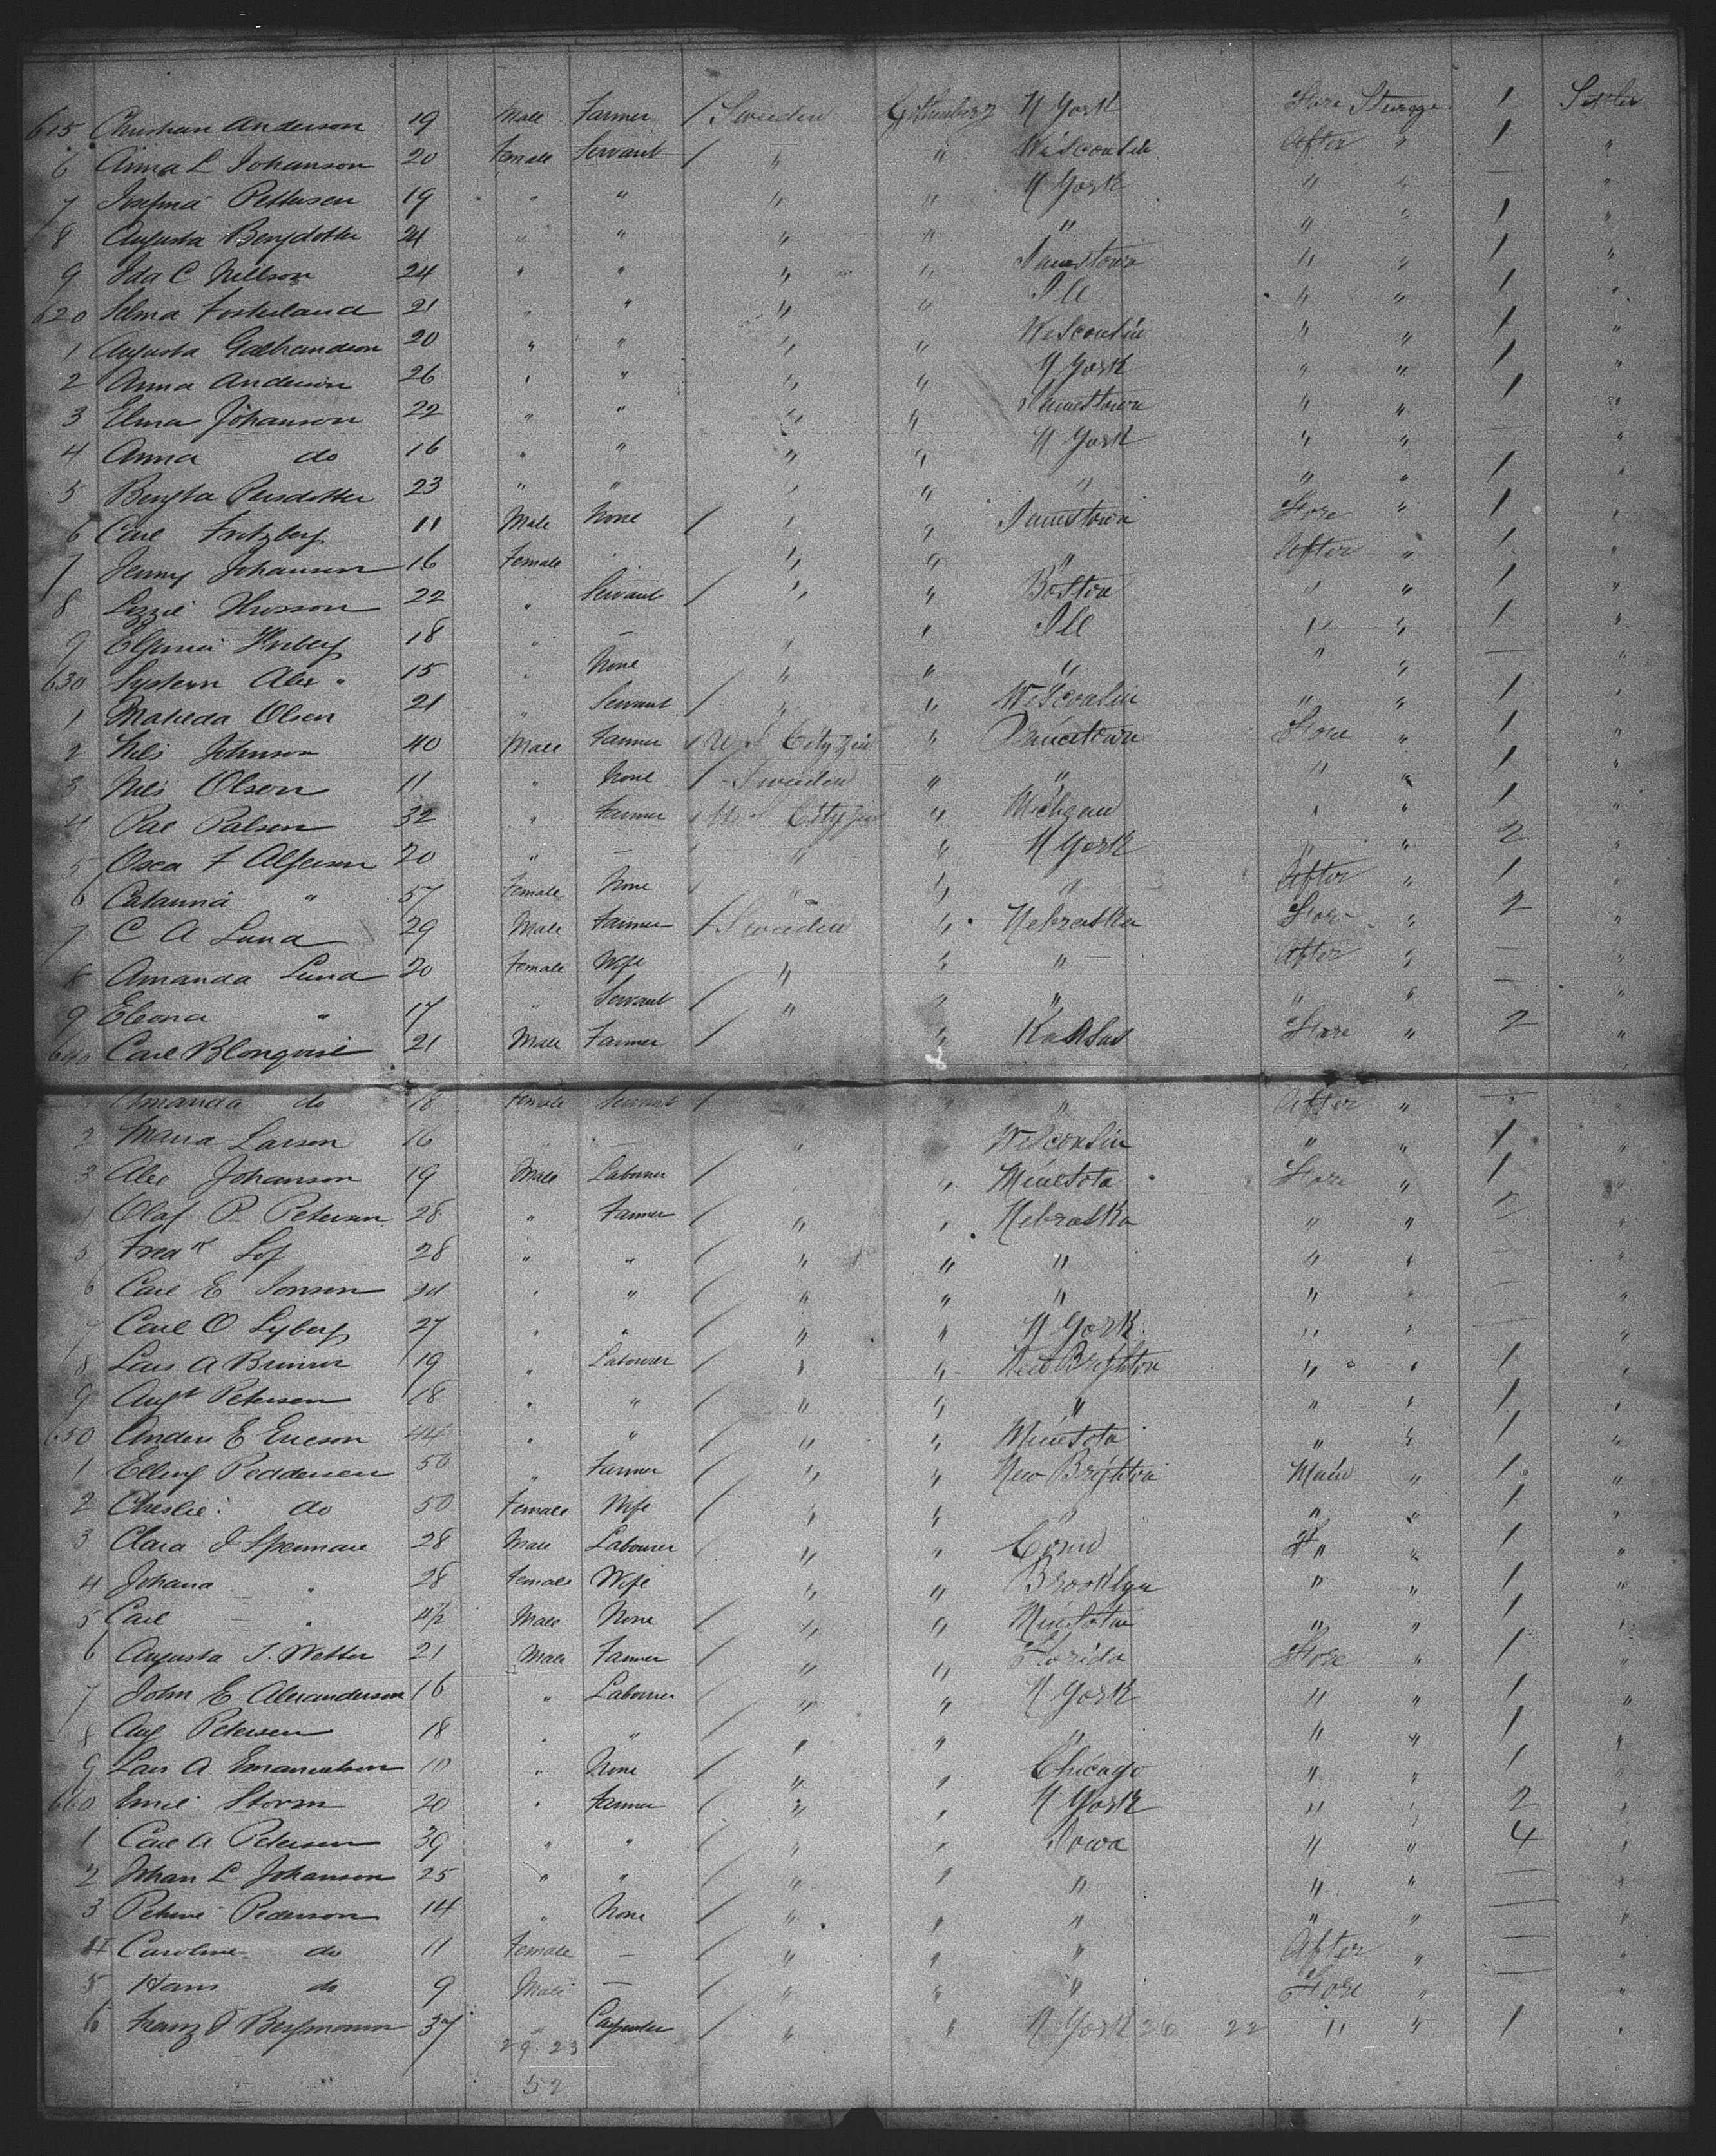 615 Christian Anderson 19 Male Farmer / Sweden Gothenburg N York Fore Steerage 1 Settler
6 Anna L Johanson 20 Female Servant / " " Wisconsin After " 1 "
7 Josefina Pettersen 19 " " " " N York " " — "
8 Augusta Bengdotter 21 " " " " " " " 1 "
9 Ida C Nillson 24 " " " " Jamestown " " 1 "
620 Selma Fosterland 21 " " " " Ill " " 1 "
1 Augusta 20 " " " " Wisconsin " " 1 "
2 Anna Anderson 26 " " " " N York " " 1 "
3 Elma Johanson 22 " " " " Jamestown " " 1 "
4 Anna do 16 " " " " N York " " — "
5 Bengta Persdotter 23 " " " " " " " 1 "
6 Carl Fritzberg 11 Male None / " " Jamestown Fore " 1 "
7 Jenny Johanson 16 Female " " " After " 1 "
8 Lizzie 22 " Servant / " " Boston " " 1 "
9 18 " — " " Ill " " 1 "
630 Alex " 15 " None " " " " " — "
1 Matilda Olsen 21 " Servant / " " Wisconsin " " 1 "
2 Nils Johnson 40 Male Farmer / U S Cityzen " Jamestown Fore " 1 "
3 Nils Olson 11 " None / Sweden " " " " 1 "
4 Pal Palson 32 " Farmer / U S Cityzen " Michgan " " 1 "
5 Osca F Alferson 20 " — " " N York " " 2 "
6 Catarina " 57 Female None " " " After " 1 "
7 C A Lund 29 Male Farmer / Sweden " Nebraska Fore " 2 "
8 Amanda Lund 20 Female Wife " " " After " — "
9 Eleona " 17 " Servant / " " " " " — "
640 Carl Blonqvist 21 Male Farmer / " Kansas Fore " 2 "
Amanda do 18 Female Servant / " " " After " — "
2 Maria Larson 16 " — " " Wisconsin " " 1 "
3 Alex Johanson 19 Male Labourer / " Minesota Fore " 1 "
4 Olaf P Peterson 28 " Farmer / " " Nebraska " " 2 "
5 Fredk Lof 28 " " / " " " " " — "
6 Carl E Jonson 24 " " / " " " " " — "
7 Carl O Lyberg 27 " " / " " N York " " — "
8 Lars A 19 " Labourer / " " New Brighton " " 1 "
9 Augt Peterson 18 " " / " " " " " 1 "
650 Anders E Ericson 44 " " / " " Minesota " " 1 "
1 Elling Peddersen 50 " Farmer / " " New Brighton Main " 1 "
2 do 50 Female Wife / " " " " " 1 "
3 Clara J 28 Male Labourer / " " Conn " " 1 "
4 Johana " 28 Female Wife / " " Brooklyn " " 1 "
5 Carl " 4½ Male None / " " Minesota " " 1 "
6 Augusta J. Wetter 21 Male Farmer / " " Florida Fore " 1 "
7 John E Alexanderson 16 " Labourer / " " N York " " 1 "
8 Aug Petersen 18 " " / " " " " " 1 "
9 Lars A Emanuelson 10 " None / " " Chicago " " 1 "
660 Emil Storm 20 " Farmer / " " N York " " 2 "
1 Carl A Peterson 39 " " / " " Iowa " " 4 "
2 Johan L Johanson 25 " " / " " " " " — "
3 Pederson 14 " None / " " " " " — "
4 Caroline do 11 Female — / " " " After " — "
5 Hans do 9 Male — / " " " Fore " — "
6 Franz J Bergmann 37 " Carpenter / " " N York 26 22 " " 1 "
29 23
52